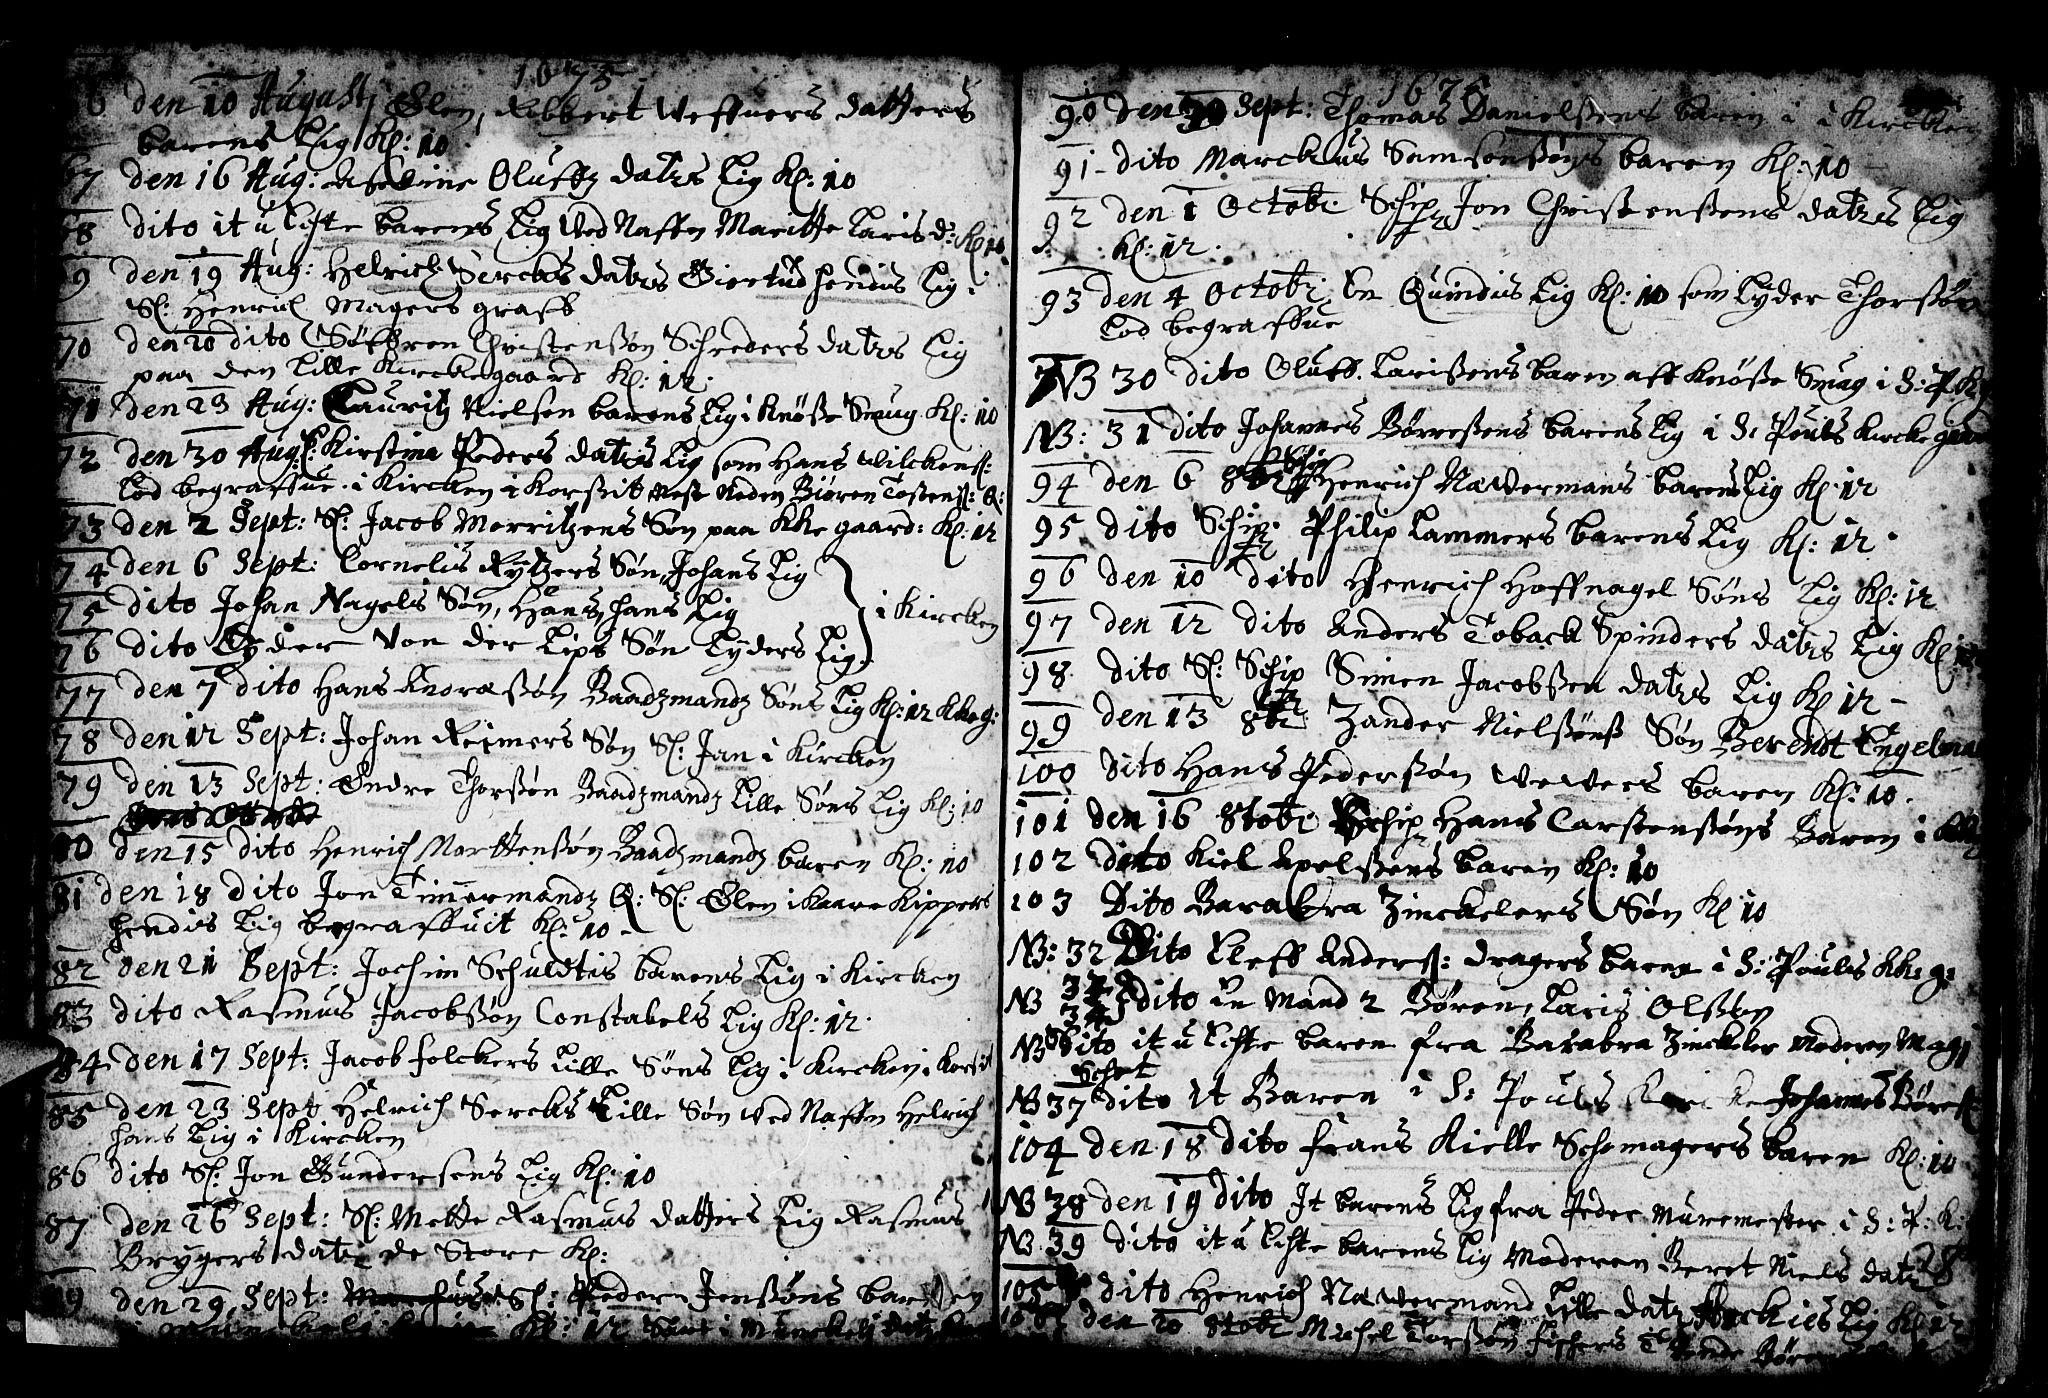 1675
6 den 10 August, Elen, Robbert Weffuers datters
barens Lig Kl: 10
67 den 16 Aug: Oluffz datrs Lig Kl: 10
68 dito it u Echte barens Lig ved Naffn Maritte Laris d: Kl 10
69 den 19 Aug: Helrich Sercks datrs Giertud hendis Lig i
Sl: Henrich Magers graff
70 den 20 dito Søffren Christensøn Schreders datrs Lig
paa den Lille Kirckegaard Kl: 12
71 den 23 Aug: Lauritz Nielsen barens Lig i Knøsse Smug Kl: 10
72 den 30 Aug: Kirstina Peders datrs Lig som Hans Wilckenss:
Lod begraffue i Kircken i Korssit
73 den 2 Sept: Sl: Jacob Morritzens Søn paa KKe gaard: Kl: 12
74 den 6 Sept: Cornelis Rytzers Søn, Johans Lig
75 dito Johan Nagels Søn, Hans, hans Lig
i Kircken
76 dito Lyder Von der Lips Søn Lyders Lig
77 den 7 dito Hans Knoræssøn Baadzmandz Søns Lig Kl: 12 KKe g:
78 den 12 Sept: Johan Reimers Søn Sl: Jan i Kircken
79 den 13 Sept: Endre Thorssøn Baadzmandz Lille Søns Lig Kl: 10
80 den 15 dito Henrich Morttenssøn Baadzmandz baren Kl: 10
81 den 18 dito Jon Timmermandz Q: Sl: Elen i Kaare Kippers
hendis Lig begraffuit Kl: 10
82 den 21 Sept: Jochim Schuldtis barens Lig i Kircken
83 dito Rasmus Jacobssøn Constabels Lig Kl: 12
84 den 17 Sept: Jacob folckers Lille Søns Lig i Kircken i Korsit
85 den 23 Sept Helrich Sercks Lille Søn ved Naffn Helrich
hans Lig i Kircken
86 dito Sl: Jon Gundersens Lig Kl: 10
87 den 26 Sept: Sl: Mette Rasmus datters Lig Rasmus
Brygers datr de Store Kl:
89 den 29 Sept: Sl: Peder Jenssøns
Kl: 12
167
90 den 30 Sept: Thomas Danielssens baren i Kircken
91 dito Marckus Samsønssøns baren Kl: 10
92 den 1 Octobr: Schipr Jon Christenssens datrs Lig
Kl: 12
93 den 4 Octobr: En Quindis Lig Kl: 10 som Lyder Thorssøn
Lod begraffue
NB 30 dito Oluff Larissens baren aff Knøsse Smug i S: P: K
NB: 31 dito Johannes Børressens barens Lig i S: Pouls Kircke gaar
94 den 6 8br Schipr Henrich Nævermans barens Lig Kl: 12
95 dito Schipr Philip Lammers barens Lig Kl: 12
96 den 10 dito Henrich Hoffnagel Søns Lig Kl: 12
97 den 12 dito Anders Toback Spinders datrs Lig Kl
98 dito Sl: Schipr Simen Jacobssen datrs Lig Kl 12
99 den 13 8br Zander Nielssøns Søn Berendt Engelma
100 dito Hans Pederssøn Wevers baren Kl: 10
101 den 16 8tobr Schipr Hans Carstenssøns Baren i
102 dito Kiel Apelssens baren Kl: 10
103 Dito Barabra Zinckelers Søn Kl 10
NB: 32 Dito Eleff Anderss: dragers baren i S: Pouls KKe g:
NB 33 34 dito En Mand 2 Børen, Laris Olssøn
NB dito it u Echte baren fra Barabra Zinckeler Moderen Magi
Schot
NB 37 dito it Baren i S: Pouls Kircke Johannes Børess
104 den 18 dito Frans Kielle Schomagers baren Kl: 10
NB 38 den 19 dito It barens Lig fra Peder Muremester i S: P: K:
NB 39 dito it u Echte barens Lig Moderen Beret Niels datr
105 dito Henrich Nævermand Lille datr Lig Kl 12
106 den 20 8tobr Michel Torssøn fischers Børen